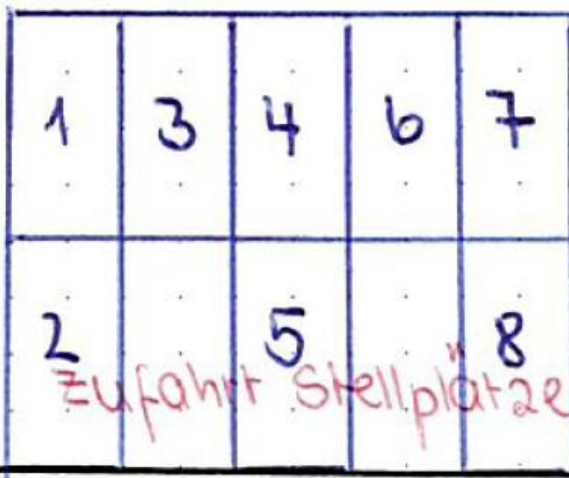 1 3 4 6 7
2 5 8
Zufahrt Stellplätze